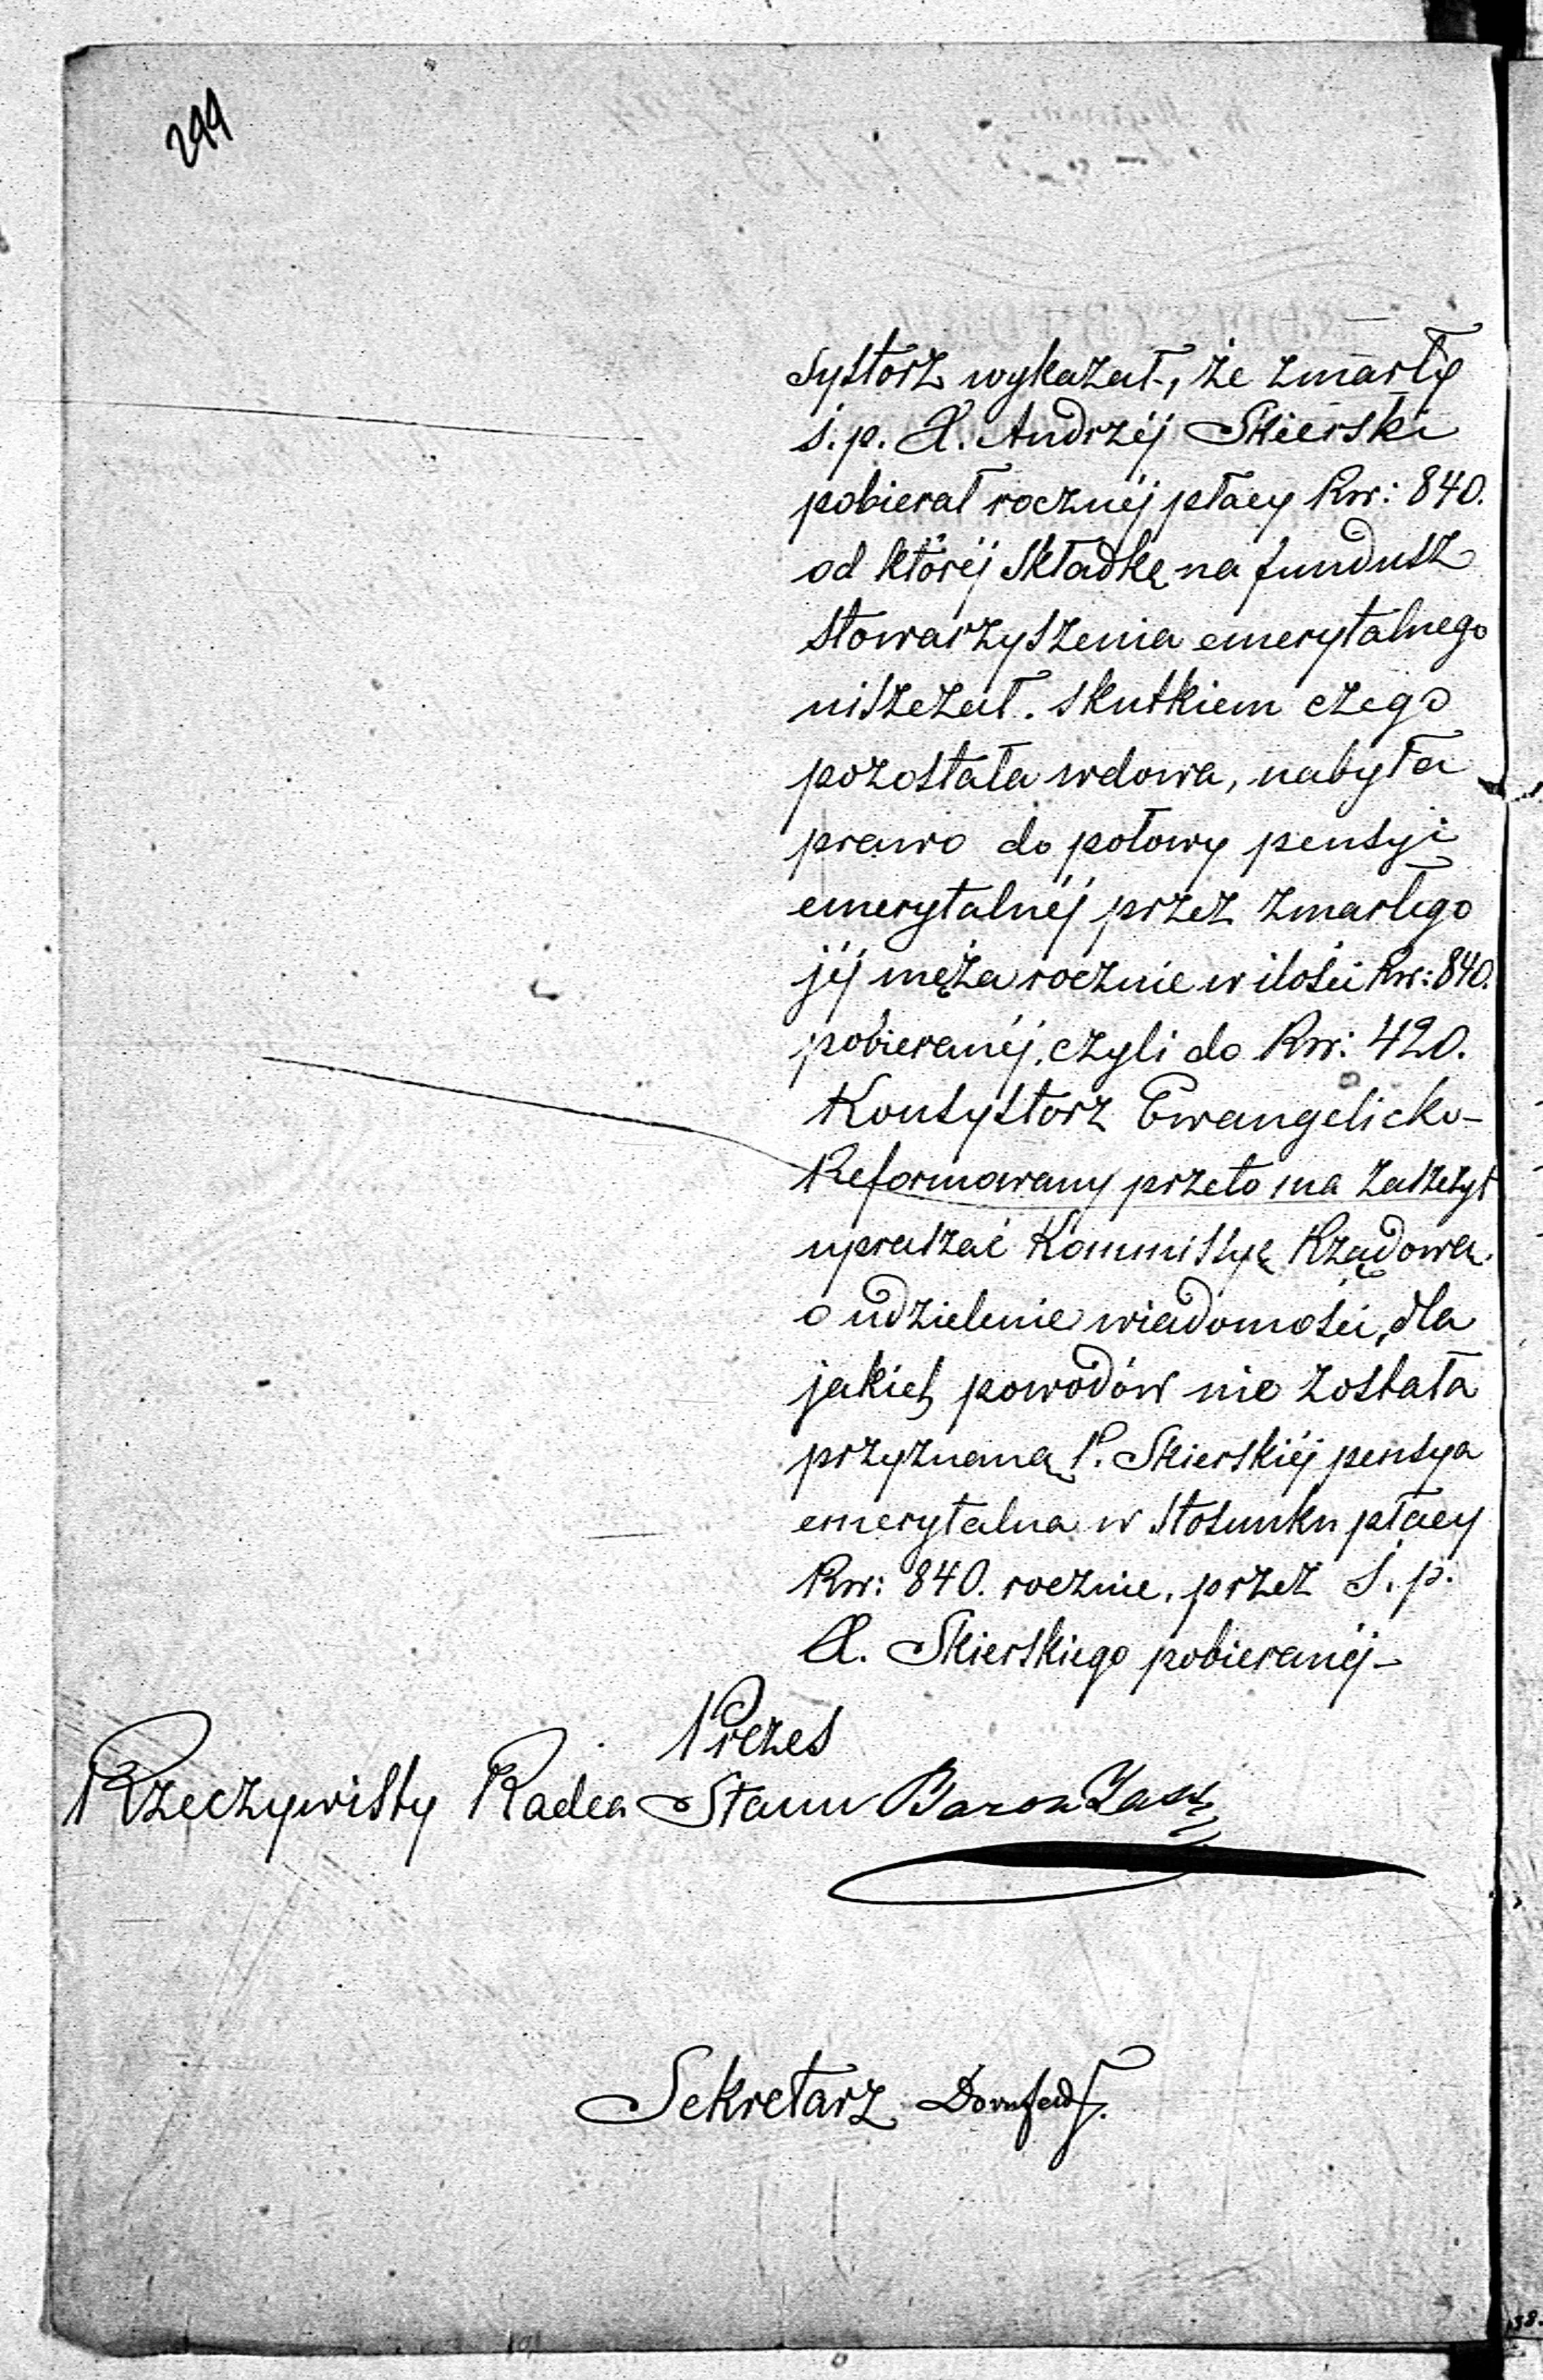 299
systorz wykazał, że zmarły
ś. p. X. Andrzéj Skierski
pobierał rocznéj płacy Rsr: 840.
od któréj składkę na fundusz
stowarzyszenia emerytalnego
uiszczał. skutkiem czego
pozostała wdowa, nabyła
prawo do połowy pensyi
emerytalnéj przez zmarłego
jéj męża rocznie w ilości Rsr: 840.
pobieranéj, czyli do Rsr: 420.
Konsystorz Ewangelicko-
Reformowany przeto ma zaszczyt
upraszać Kommissyę Rządową
o udzielenie wiadomości, dla
jakich powodów nie została
przyznaną P. Skierskiéj pensya
emerytalna w stosunku płacy
Rsr: 840. rocznie, przez ś. p.
X. Skierskiego pobieranéj -
Prezes
Rzeczywisty Radca Stanu Baron
Sekretarz